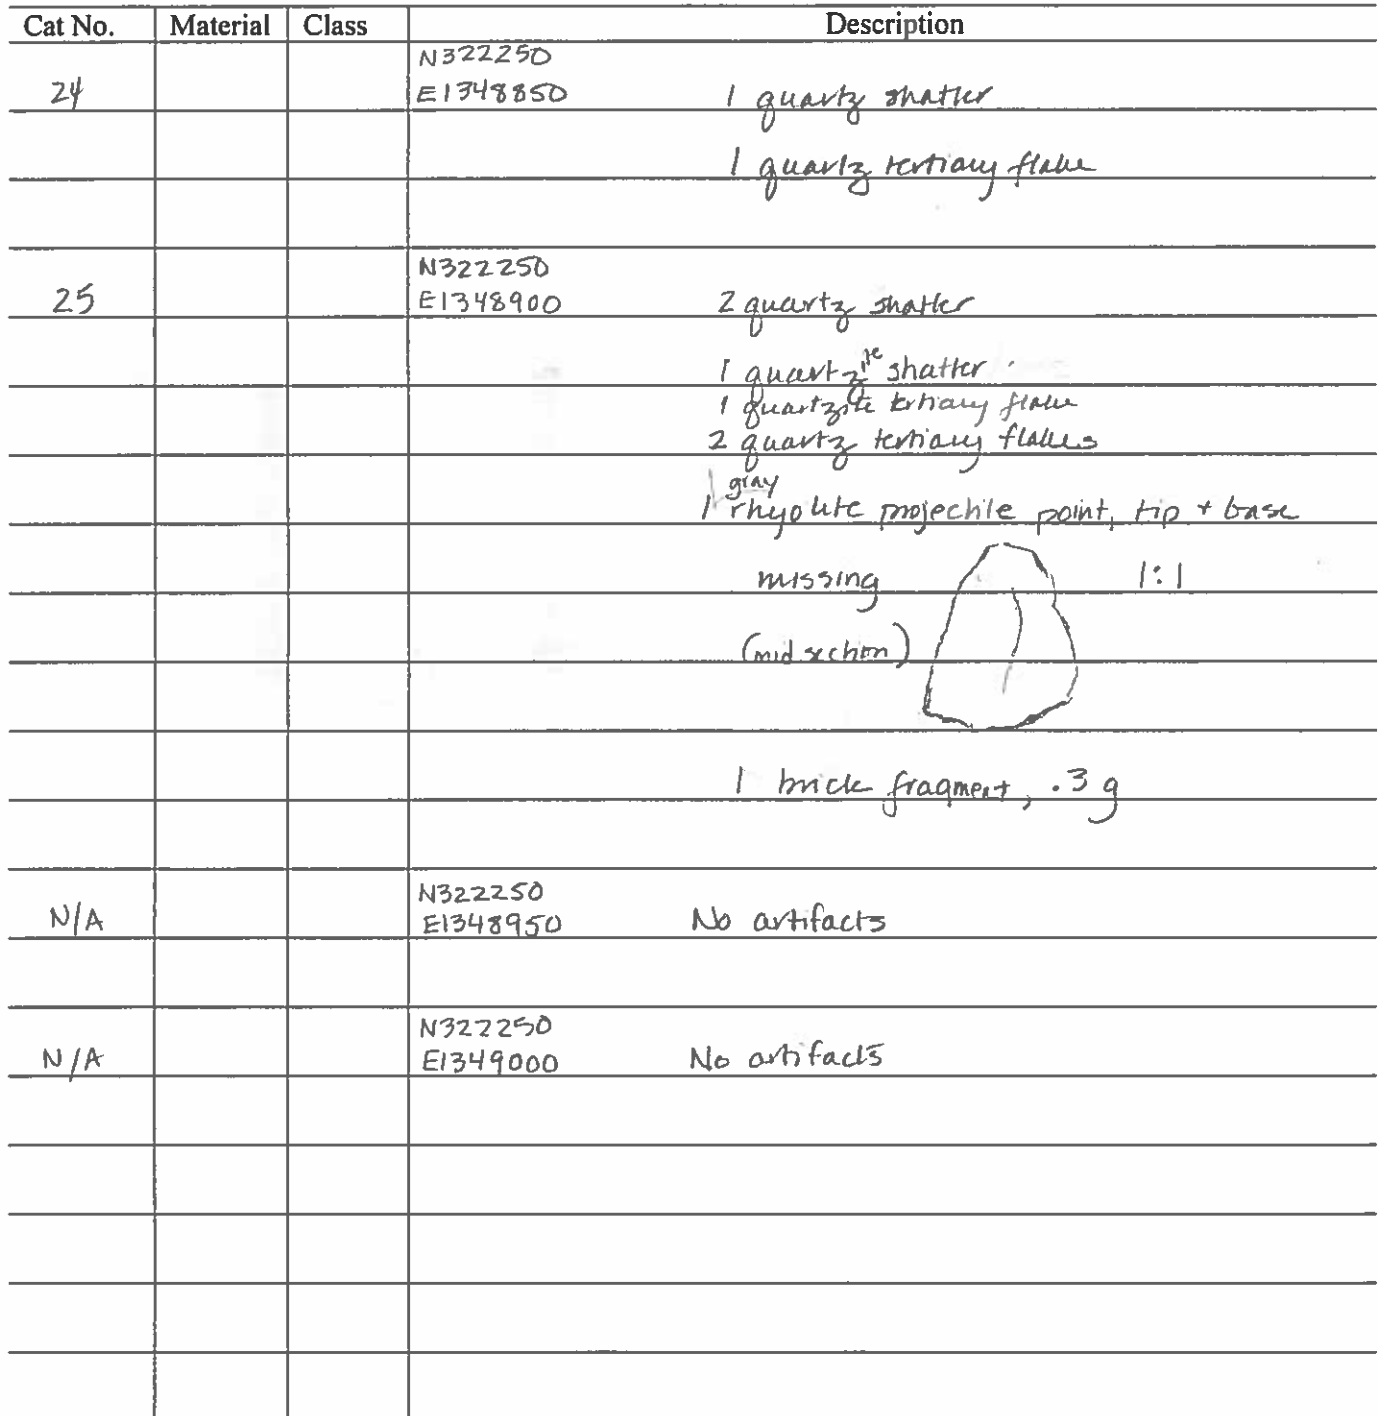 Cat No. Material Class Description
N322250
24 E1348850 1 quartz shatter
1 quartz tertiary flake
N322250
25 E1348900 2 quartz shatter
1 quartzite shatter
1 quartzite tertiary flake
2 quartz tertiary flakes
gray
1 rhyolite projectile point, tip + base
missing 1:1
(midsection)
1 brick fragment, .3 g
N322250
N/A E1348950 No artifacts
N322250
N/A E1349000 No artifacts